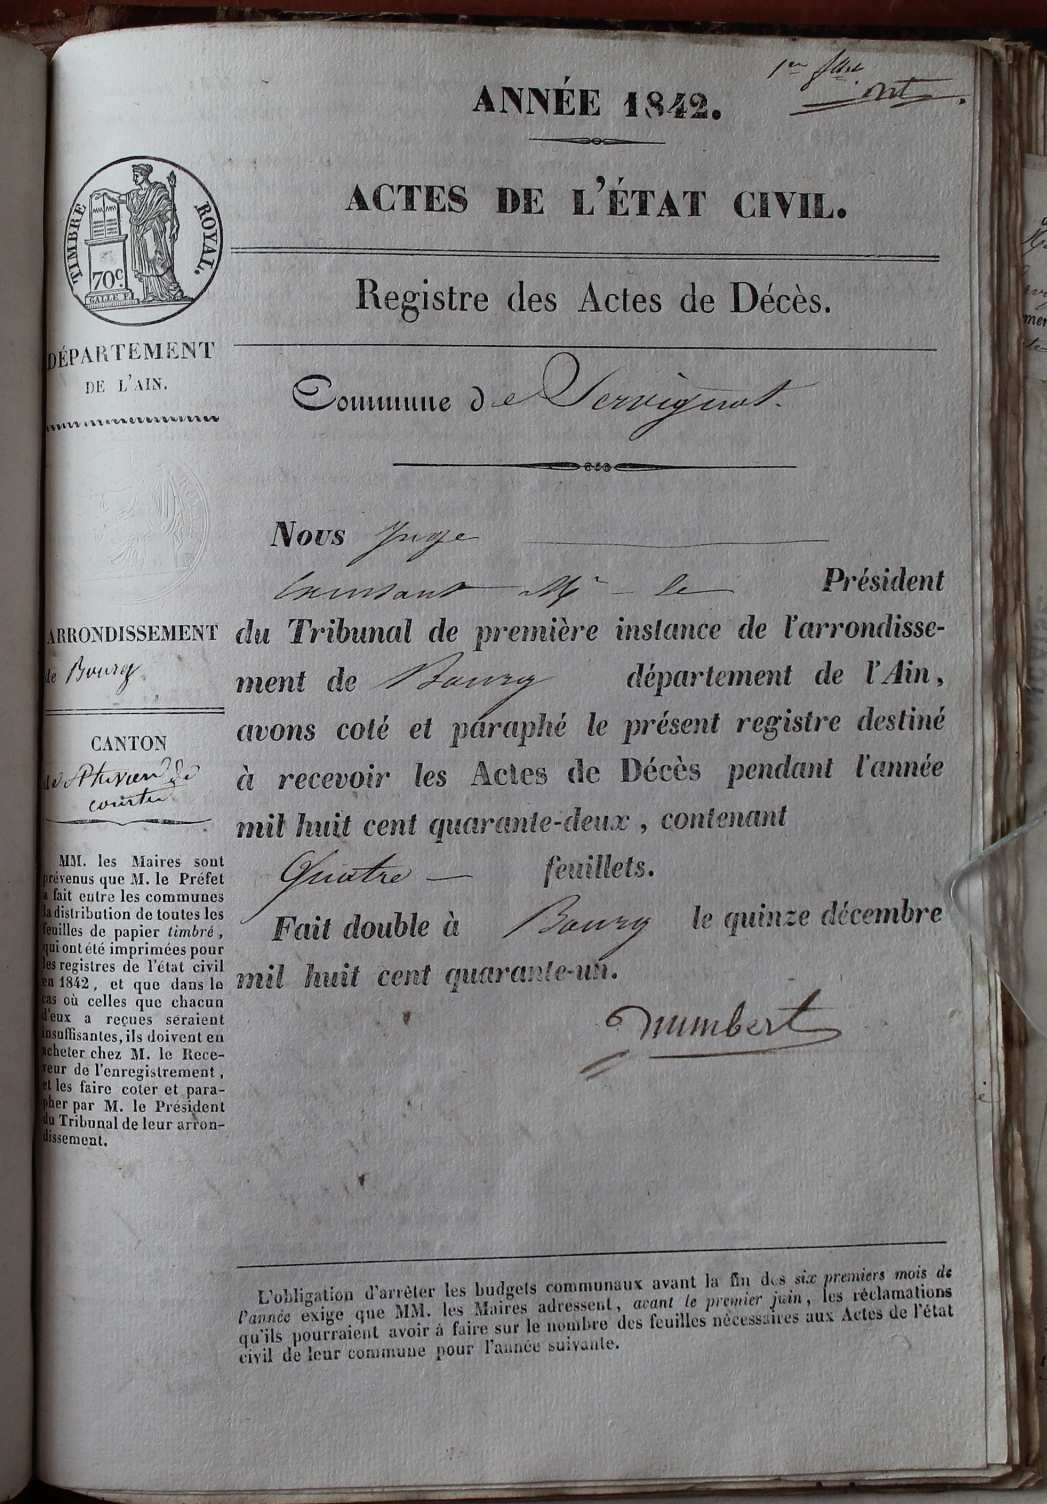 1er fllet
ANNÉE 1842.
ACTES DE L'ÉTAT CIVIL.
TIMBRE ROYAL.
70c
Registre des Actes de Décès.
DÉPARTEMENT
DE L'AIN.
Commune de Servignat.
Nous Juge
Président
du Tribunal de première instance de l'arrondisse-
ment de Bourg département de l'Ain,
avons coté et paraphé le présent registre destiné
à recevoir les Actes de Décès pendant l'année
mil huit cent quarante-deux, contenant
Quatre feuillets.
Fait double à Bourg le quinze décembre
mil huit cent quarante-un.
ARRONDISSEMENT
de Bourg
CANTON
de St trivier de
courtes
MM. les Maires sont
prévenus que M. le Préfet
a fait entre les communes
la distribution de toutes les
feuilles de papier timbré,
qui ont été imprimées pour
les registres de l'état civil
en 1842, et que dans le
cas où celles que chacun
d'eux a reçues seraient
insuffisantes, ils doivent en
acheter chez M. le Rece-
veur de l'enregistrement,
et les faire coter et para-
pher par M. le Président
du Tribunal de leur arron-
dissement.
L'obligation d'arrêter les budgets communaux avant la fin des six premiers mois de
l'année exige que MM. les Maires adressent, avant le premier juin, les réclamations
qu'ils pourraient avoir à faire sur le nombre des feuilles nécessaires aux Actes de l'état
civil de leur commune pour l'année suivante.